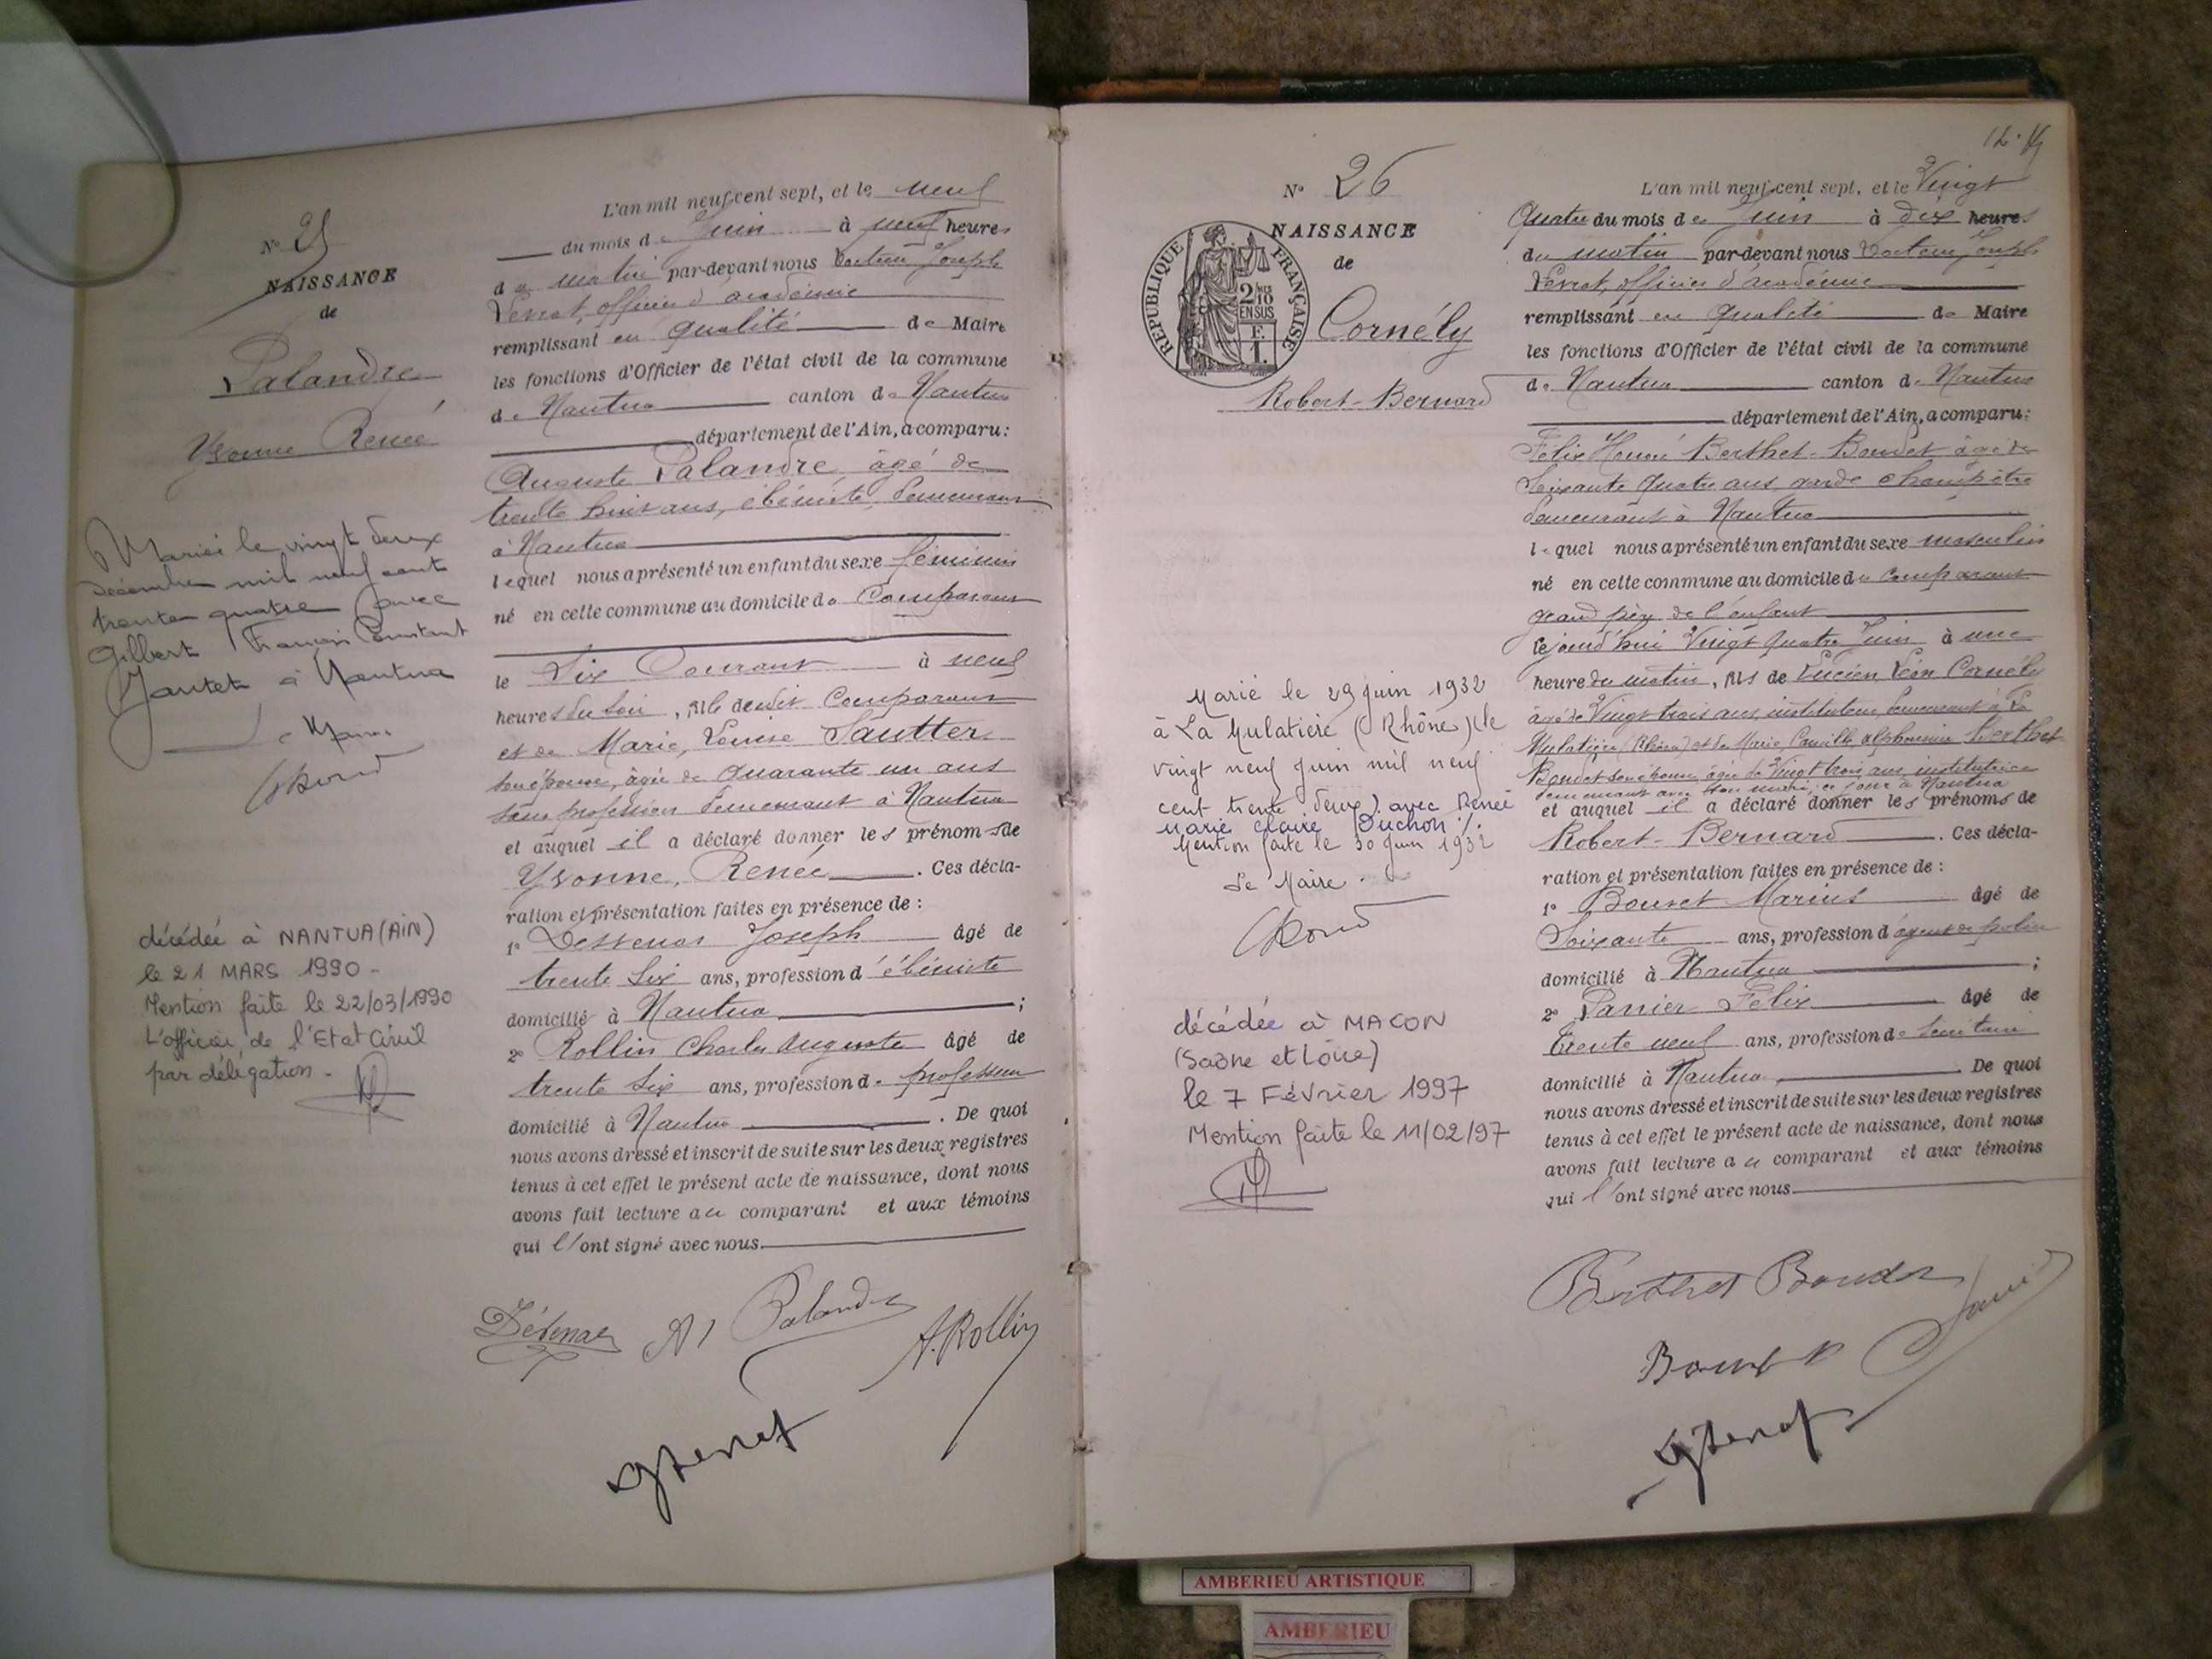 N° 25
NAISSANCE
de
Palandre
Yvonne Renée
Mariée le vingt deux
décembre mil neuf cent
trente quatre avec
Gilbert François Constant
Jantet à Nantua
Le Maire
décédée à NANTUA (AIN)
le 21 MARS 1990 -
Mention faite le 22/03/1990
L'officier de l'Etat Civil
par délégation -
L'an mil neuf cent sept, et le neuf
du mois de Juin à neuf heures
du matin par-devant nous Docteur Joseph
officier d'académie
remplissant en qualité de Maire
les fonctions d'Officier de l'état civil de la commune
de Nantua canton de Nantua
département de l'Ain, a comparu:
Auguste Palandre âgé de
trente huit ans, ébéniste, demeurant
à Nantua
lequel nous a présenté un enfant du sexe féminin
né en cette commune au domicile du Comparant
le Six Courant à neuf
heures du soir, fille dudit Comparant
et de Marie, Louise Sautter
son épouse, âgée de quarante un ans
sans profession demeurant à Nantua
et auquel il a déclaré donner les prénoms de
Yvonne, Renée. Ces décla-
ration et présentation faites en présence de :
1° Joseph âgé de
trente six ans, profession d'ébéniste
domicilié à Nantua ;
2° Rollin Charles Auguste âgé de
trente six ans, profession de professeur
domicilié à Nantua. De quoi
nous avons dressé et inscrit de suite sur les deux registres
tenus à cet effet le présent acte de naissance, dont nous
avons fait lecture au comparant et aux témoins
qui l'ont signé avec nous.
Palandre
A. Rollin
N° 26
NAISSANCE
de
RÉPUBLIQUE FRANÇAISE
2/10
EN SUS
Cornély
Robert-Bernard
Marié le 29 juin 1932
à La Mulatière (Rhône) (le
vingt neuf juin mil neuf
cent trente deux) avec Renée
Marie Claire Duchon ./.
Mention faite le 30 juin 1932
Le Maire
décédée à MACON
(Saône et Loire)
le 7 Février 1997
Mention faite le 11/02/97
L'an mil neuf cent sept, et le Vingt
Quatre du mois de Juin à dix heures
du matin par-devant nous Docteur Joseph
officier d'académie
remplissant en qualité de Maire
les fonctions d'Officier de l'état civil de la commune
de Nantua canton de Nantua
département de l'Ain, a comparu:
Félix Honoré Berthet-Bondet âgé de
Soixante quatre ans, garde champêtre
demeurant à Nantua
lequel nous a présenté un enfant du sexe masculin
né en cette commune au domicile du comparant
grand père de l'enfant
cejourd'hui Vingt Quatre Juin à une
heure du matin, fils de Lucien Léon Cornély
âgé de Vingt trois ans, instituteur, demeurant à La
Mulatière (Rhône) et de Marie Camille Alphonsine Berthet
Bondet son épouse âgée de Vingt trois ans, institutrice
demeurant avec son mari, ce jour à Nantua
et auquel il a déclaré donner les prénoms de
Robert-Bernard. Ces décla-
ration et présentation faites en présence de :
1° Bouvet Marius âgé de
Soixante ans, profession d'agent de police
domicilié à Nantua ;
2° Panier Félix âgé de
trente neuf ans, profession de Secrétaire
domicilié à Nantua. De quoi
nous avons dressé et inscrit de suite sur les deux registres
tenus à cet effet le présent acte de naissance, dont nous
avons fait lecture au comparant et aux témoins
qui l'ont signé avec nous.
Berthet Bondet
AMBERIEU ARTISTIQUE
AMBERIEU